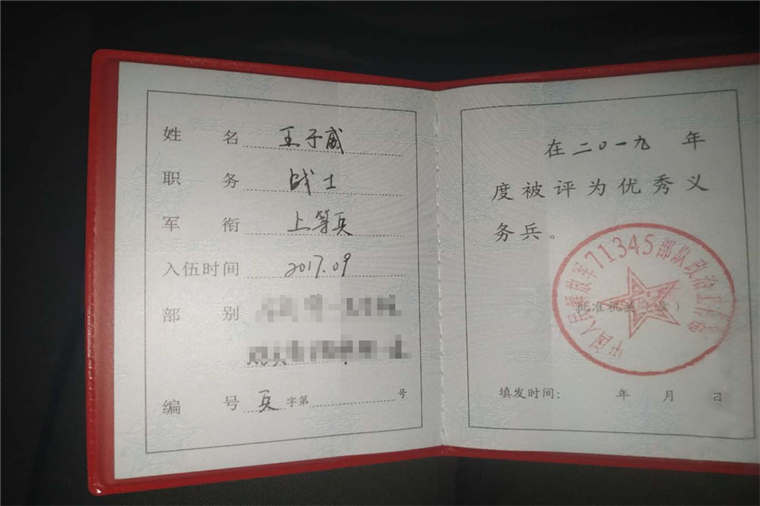 姓名 王子威
职务 战士
军衔 上等兵
入伍时间 2017.09
部别
编号 兵字第 号
在二〇一九年
度被评为优秀义
务兵。
中国人民解放军71345部队政治工作部
批准机关
填发时间： 年 月 日